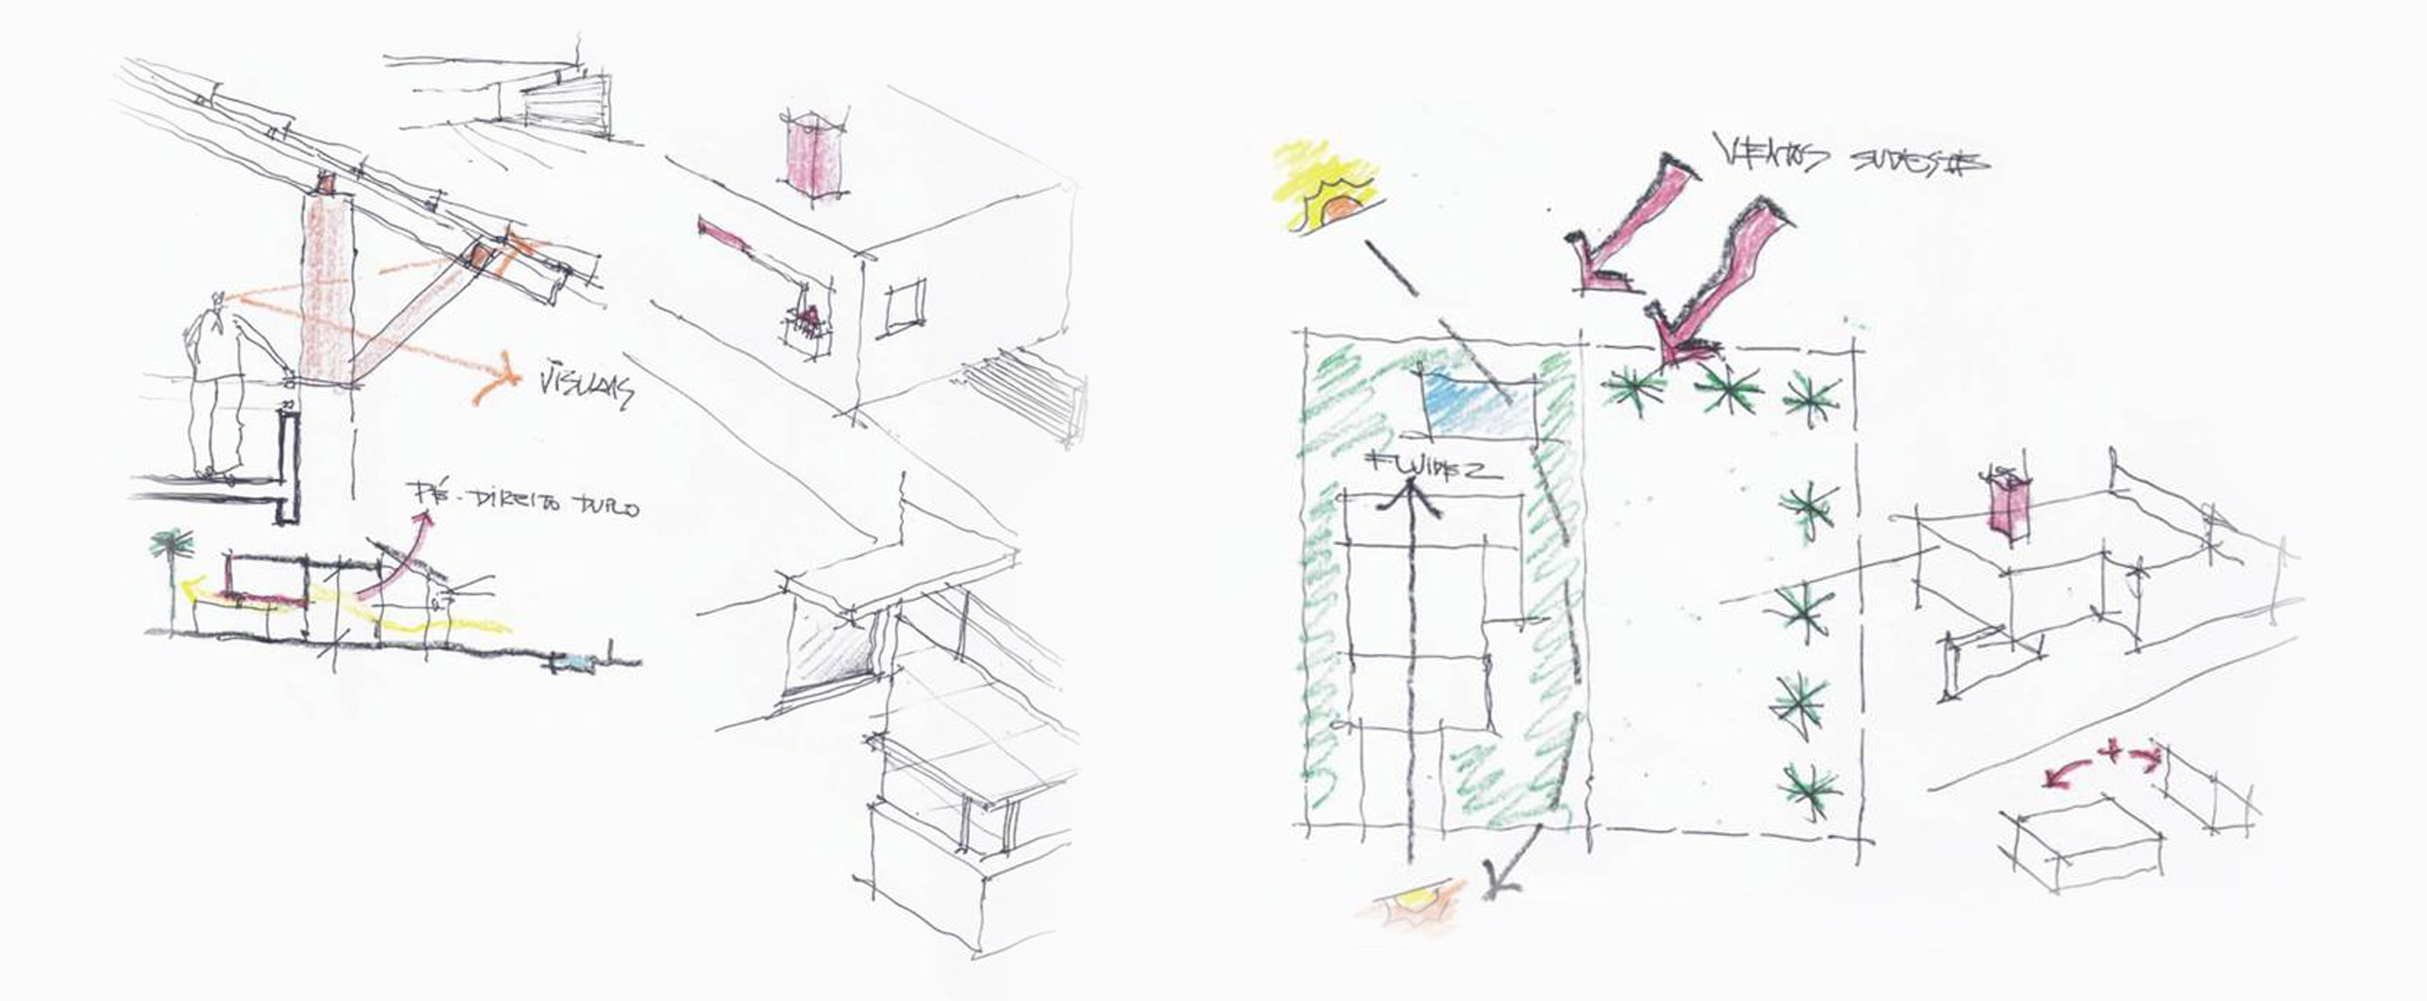 VISUAIS
PÉ-DIREITO DUPLO
VENTOS SUDESTE
FLUIDEZ